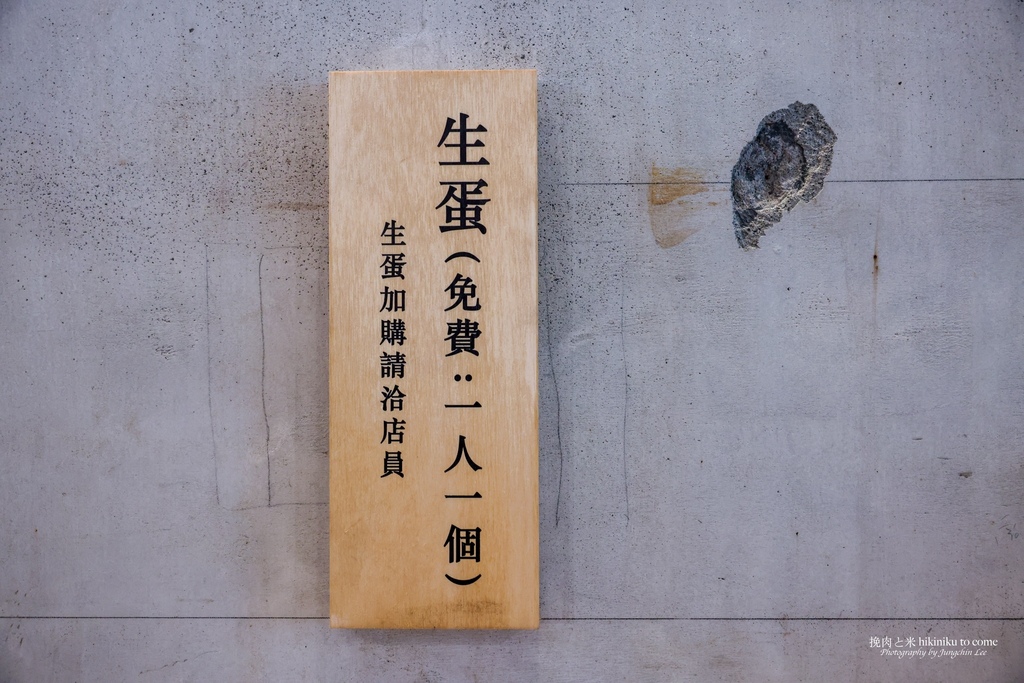 生蛋（免費：一人一個）
生蛋加購請洽店員
挽肉と米 hikiniku to come
Photography by Jungchin Lee